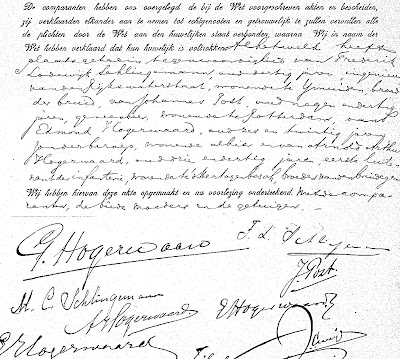 De comparanten hebben ons overgelegd de bij de Wet voorgeschreven akten en bescheiden,
zij verklaarden elkander aan te nemen tot echtgenooten en getrouwelijk te zullen vervullen alle
de plichten door de Wet aan den huwelijken staat verbonden, waarna Wij in naam der
Wet hebben verklaard dat hun huwelijk is voltrokken. Al hetwelk heeft
plaats gehad in tegenwoordigheid van Frederik
Lodewijk Schlingemann, oud dertig jaren, ingenieur
van den Rijkswaterstaat, wonende te IJmuiden, broeder
der bruid, van Johannes Post, oud negen en dertig
jaren, wonende te Rotterdam, van
Edmond Hogerwaard, oud zes en twintig jaren,
zonder beroep, wonende alhier en van Arthur
Hogerwaard, oud drie en dertig jaren, eerste luite-
nant der infanterie, wonende te 's Hertogenbosch, broeders van den bruidegom
Wij hebben hiervan deze akte opgemaakt en na voorlezing onderteekend. met de compa-
ranten, de beide moeders en de getuigen.
G. Hogerwaard
J. Post.
M. C. Schlingemann
A. Hogerwaard
E Hogerwaard
Hogerwaard